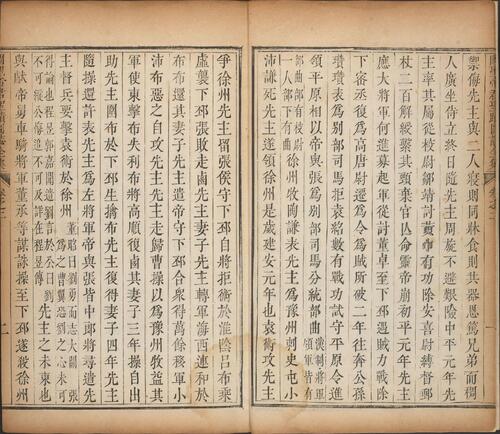 禦侮先主與二人寢則同牀食則共器恩篤兄弟而稠
人廣坐侍立終日隨先主周旋不避艱險中平元年先
主率其屬從校尉鄒靖討黃巾有功除安喜尉縛督郵
杖二百解綬繫其頭棄官亾命靈帝崩初平元年先主
應大將軍何進募起軍從討董卓至下邳遇賊力戰除
下密丞復爲高唐尉遷爲令爲賊所破二年往奔公孫
瓚瓚表爲別部司馬拒袁紹數有戰功試守平原令進
領平原相以帝與張爲別部司馬分統部曲漢制將軍領軍皆有
部曲部有校尉一人部下有曲徐州牧陶謙表先主爲豫州刺史屯小
沛謙死先主遂領徐州是歲建安元年也袁術攻先主
爭徐州先主畱張侯守下邳自將拒術於淮陰呂布乘
虛襲下邳張敗走鹵先主妻子先主轉軍海西連和於
布布還其妻子先主遣帝守下邳合衆得萬餘移軍小
沛布惡之自攻先主先主走歸曹操以爲豫州牧益其
軍使東擊布失利布將高順復鹵其妻子三年操自出
助先主圍布於下邳生擒布先主復得妻子四年先主
隨操還許表先主爲左將軍帝與張皆中郎將尋遣先
主督兵要擊袁術於徐州董昭曰劉勇而志大關張爲之曹翼恐劉之心未可
得論也程昱郭嘉聞遣劉言於公曰劉不可縱公悔追不可及詳在程昱傳先主之未東也
與獻帝舅車騎將軍董承等謀誅操至下邳遂殺徐州
二